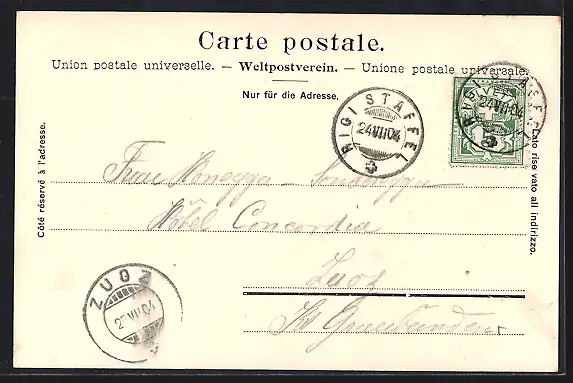 Carte postale.
Union postale universelle. — Weltpostverein. — Unione postale universale.
Nur für die Adresse.
Côté réservé à l'adresse.
Lato riservato all indirizzo.
RIGI STAFFEL
24 VII 04
RIGI STAFFEL
24 VII 04
HELVETIA
Frau Honegger
Hôtel Concordia
Zuoz
Kt Graubünden
ZUOZ
25 VII 04